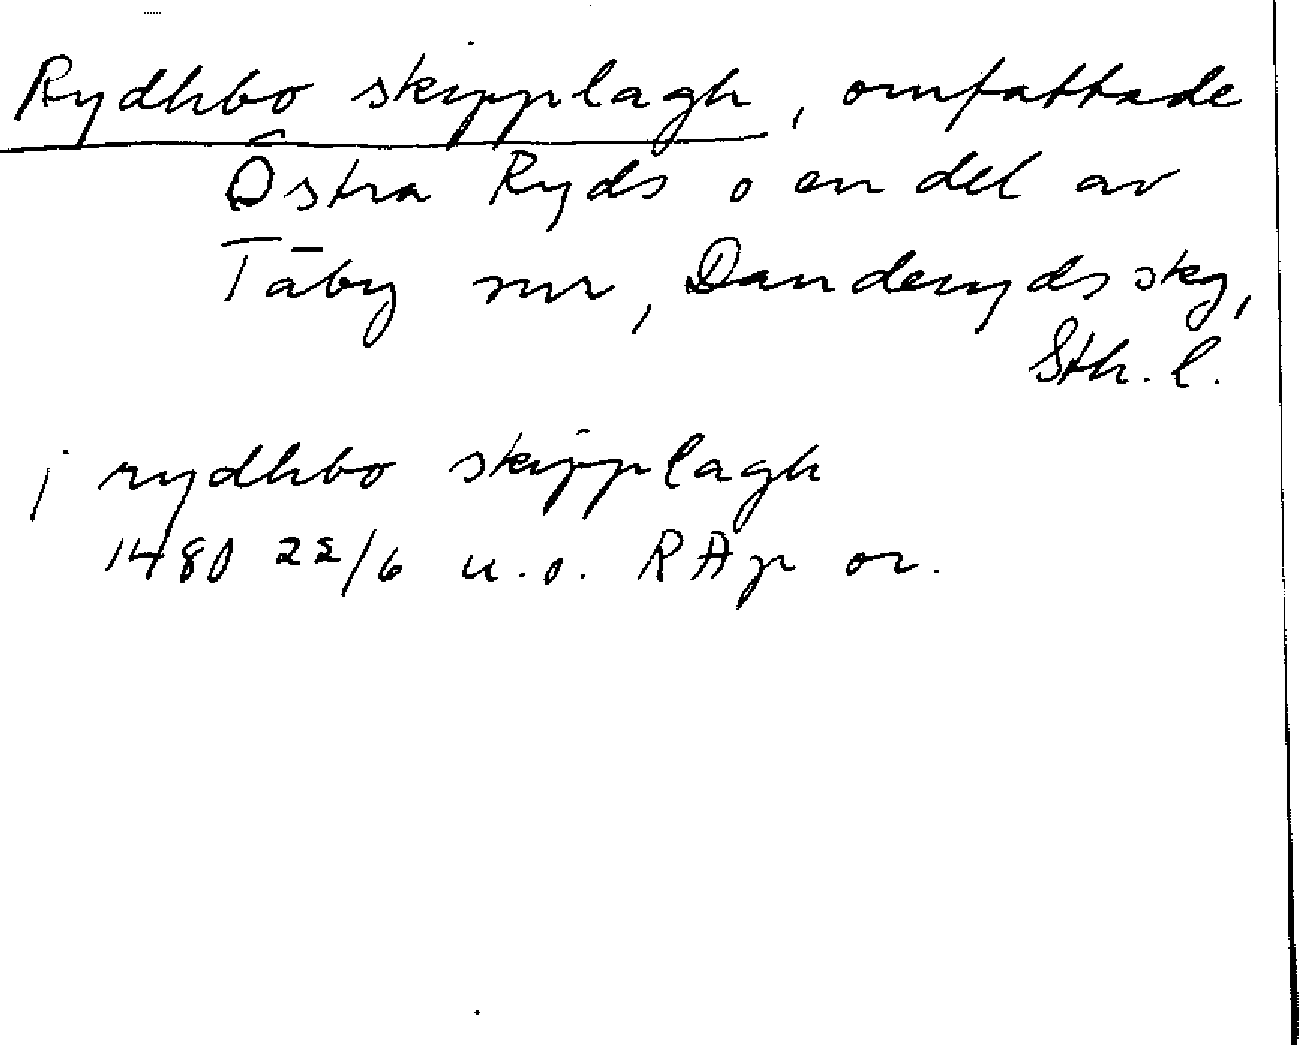 Rydhbo skipplagh, omfattade
Östra Ryds o en del av
Täby snr, Danderyds skg,
Sth. l.
j rydhbo skipplagh
1480 22/6 u.o. RAp or.